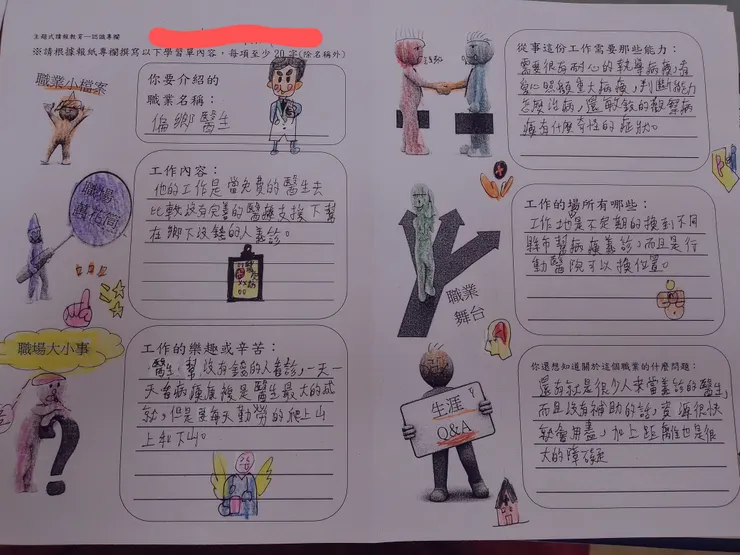 主題式讀報教育－認識專欄
※請根據報紙專欄撰寫以下學習單內容，每項至少20字(除名稱外)
職業小檔案
你要介紹的
職業名稱：
偏鄉醫生
職場
舊看問
工作內容：
他的工作是當免費的醫生去
比較沒有完善的醫護支援下幫
在鄉下沒錢的人義診。
職場大小事
工作的樂趣或辛苦：
醫生幫沒有錢的人看診，一天一
天當病護康複是醫生最大的成
就，但是要每天勤勞的爬上山
上和下山。
從事這份工作需要那些能力：
需要很有耐心的執學病癢，有
愛心照顧重大病癢，判斷能力
怎麼治病，還敏銳的觀察病
癢有什麼奇怪的症狀。
工作的場所有哪些：
工作地是不定期的換到不同
縣市幫病癢義診，而且是行
動醫院可以換位置。
職業
舞台
你還想知道關於這個職業的什麼問題：
還有就是很少人來當義診的醫生，
而且沒有補助的話，資源很快
就會用盡，加上距離也是很
大的障礙
生涯
Q&A